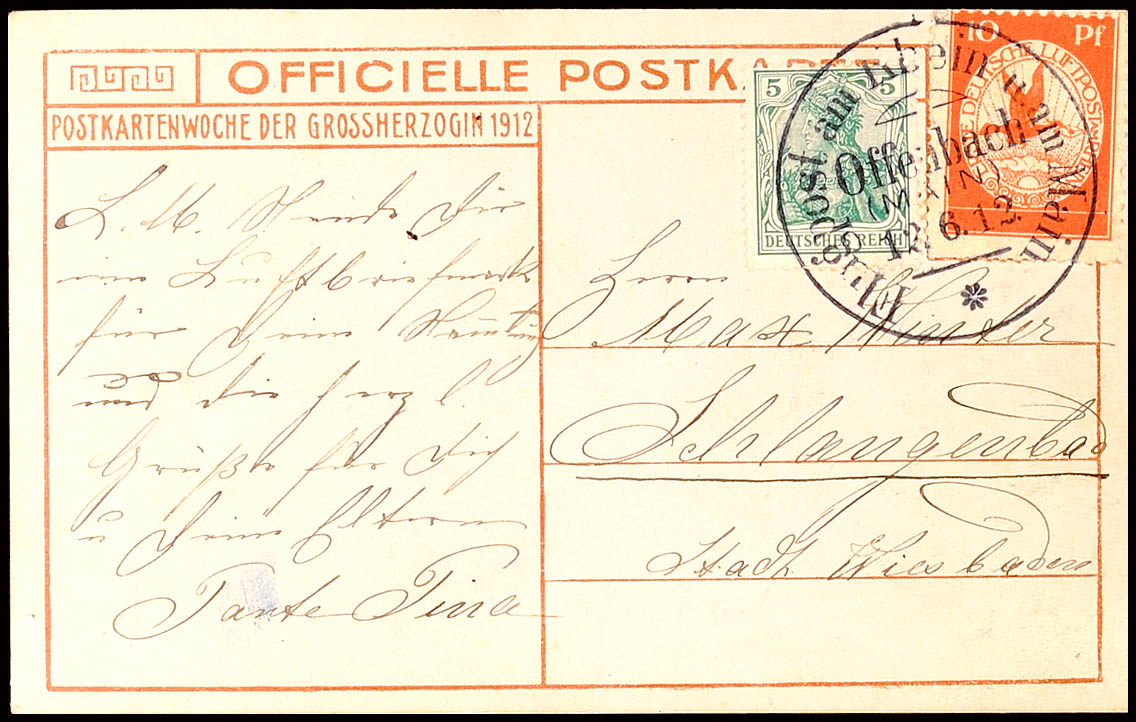 OFFICIELLE POSTKARTE
POSTKARTENWOCHE DER GROSSHERZOGIN 1912
5 5
DEUTSCHES REICH
10 Pf
DEUTSCHE LUFTPOST AM
Flugpost am Rhein u. am Main
Offenbach
(MAIN)
12.6.12
L. M. Sende Dir
eine Luftbriefmarke
für Deine
und die herzl.
Grüße für Dich
u Deine Eltern
Tante Tina
Herrn
Max Winter
Schlangenbad
Stadt Wiesbaden